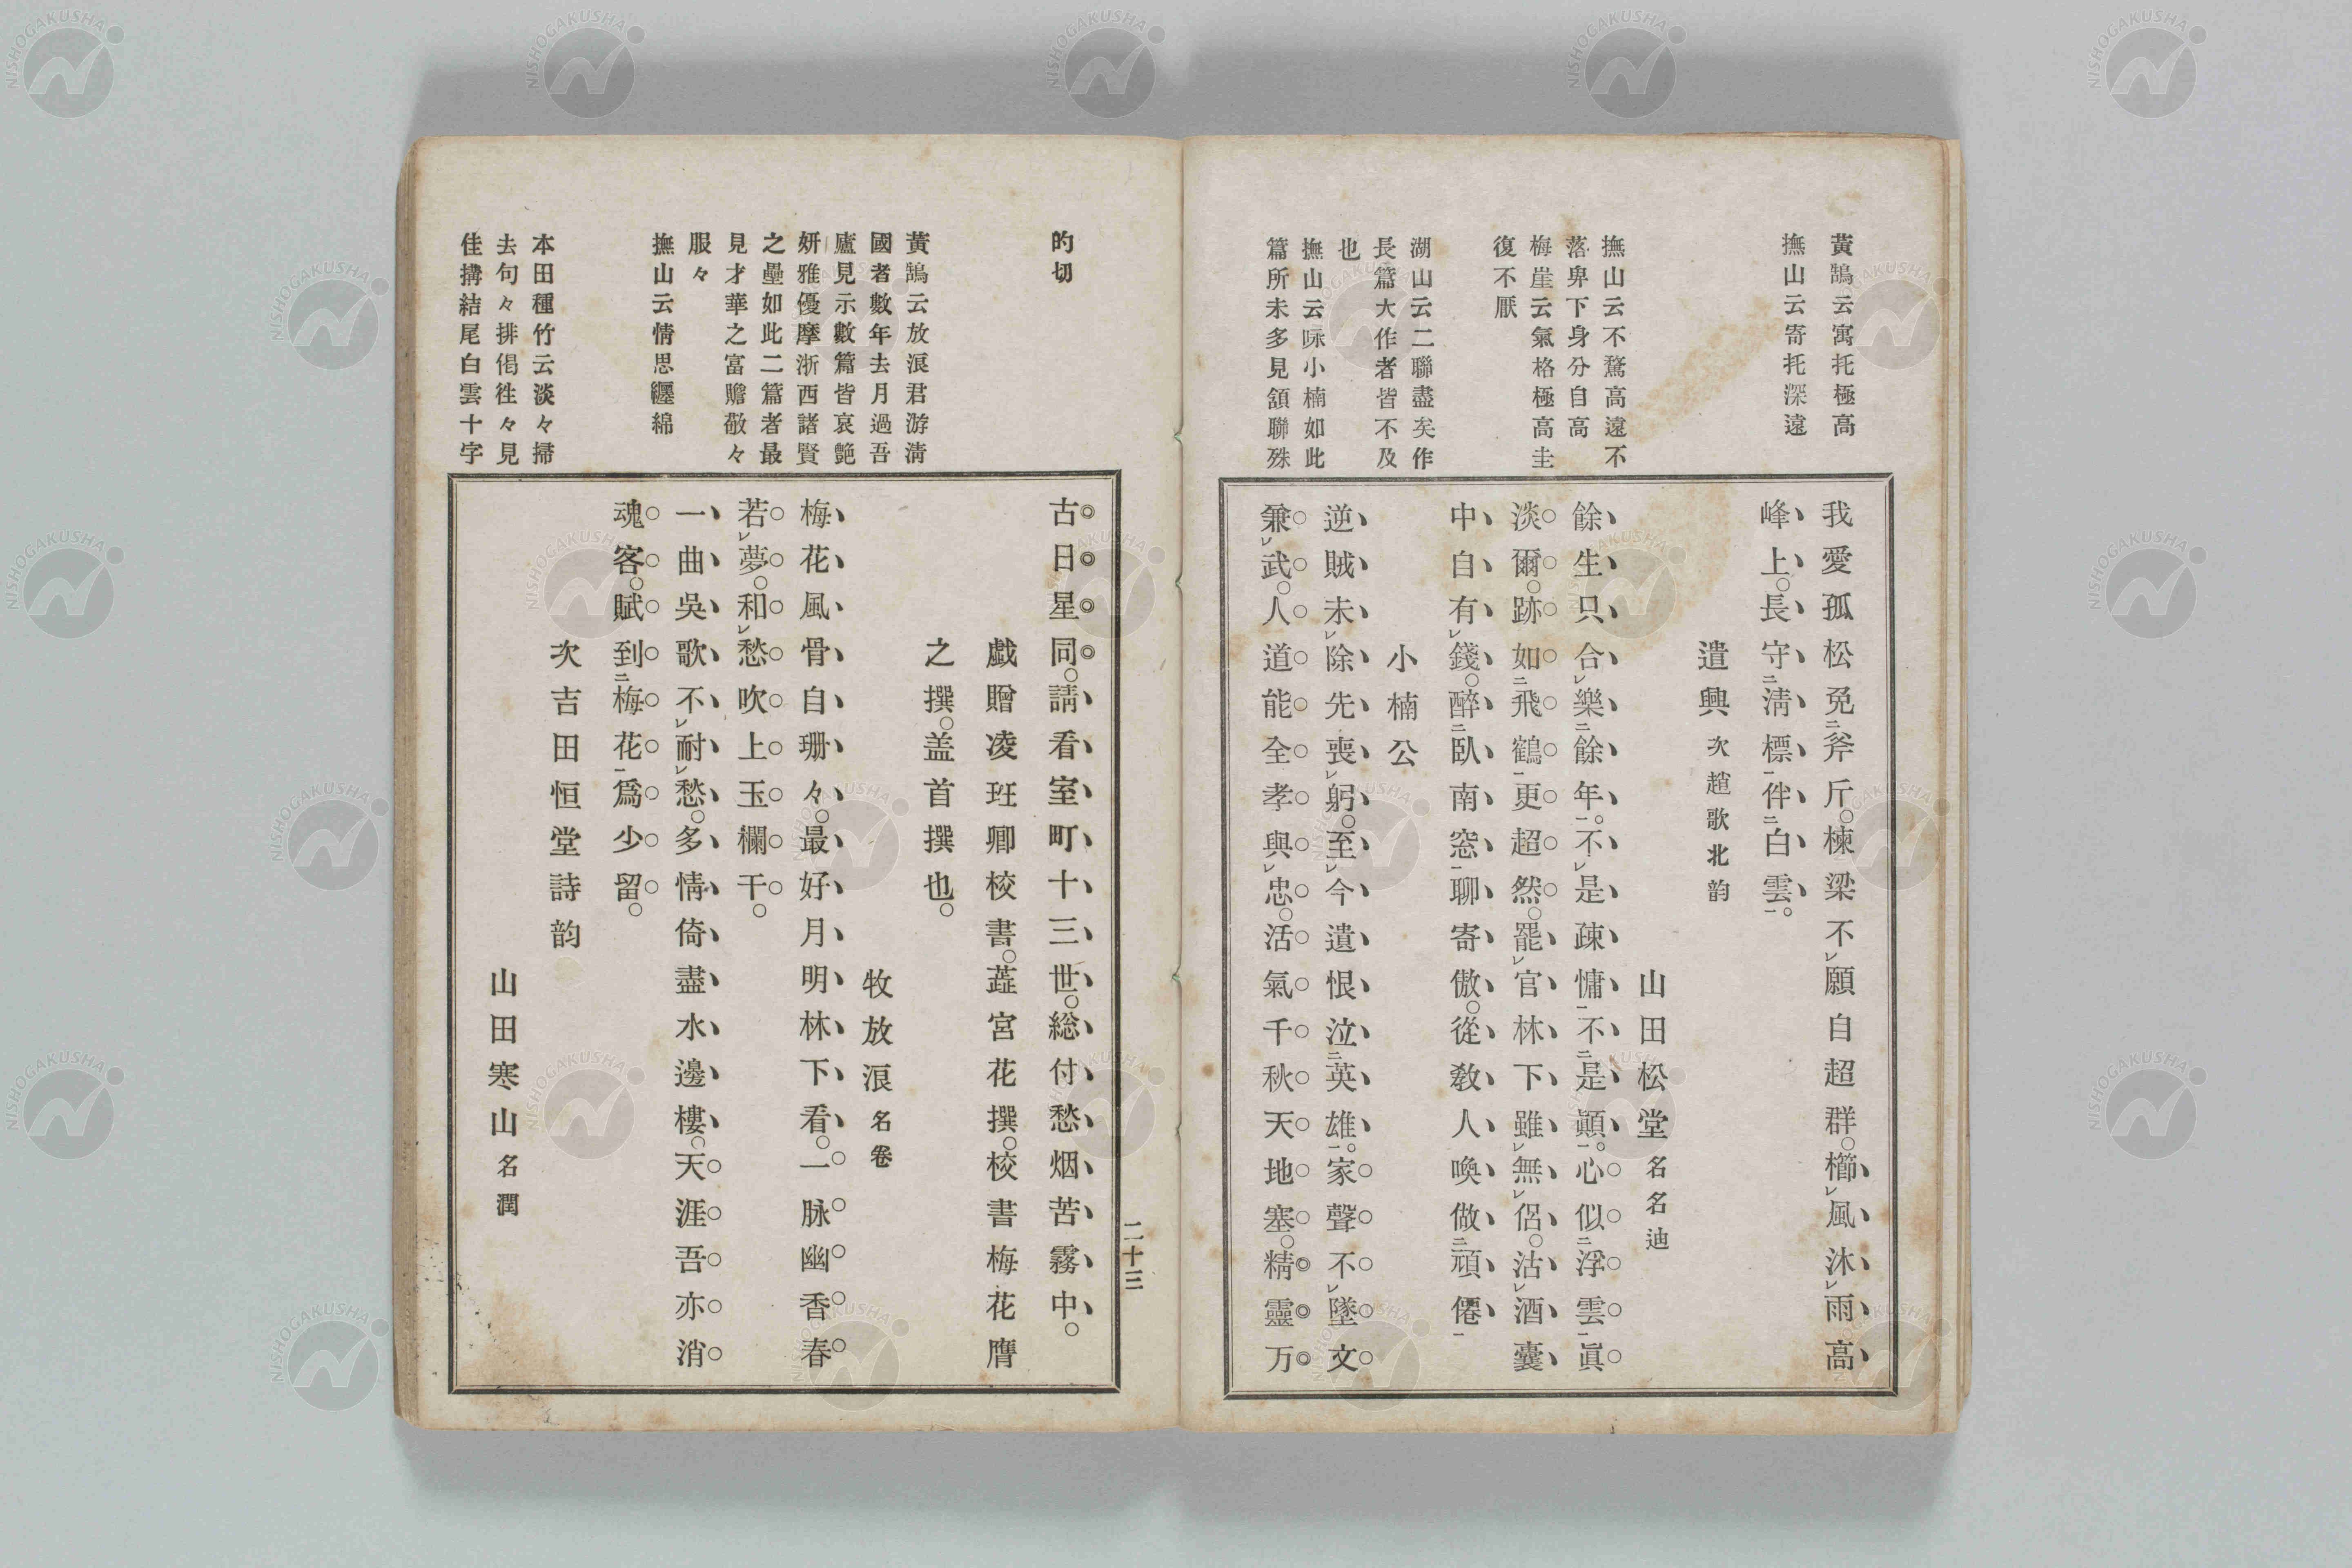 黃鵠云寓托極高
撫山云寄托深遠
撫山云不騖高遠不
落卑下身分自高
梅崖云氣格極高圭
復不厭
湖山云二聯盡矣作
長篇大作者皆不及
也
撫山云咏小楠如此
篇所未多見頷聯殊
我愛孤松免斧斤。楝梁不願自超群。櫛風沐雨高
峰上。長守淸標伴白雲。
遣興 次趙歌北韵
山田松堂 名名迪
餘生只合樂餘年。不是疎慵不是顚。心似浮雲眞
淡爾。跡如飛鶴更超然。罷官林下雖無侶。沽酒囊
中自有錢。醉臥南窓聊寄傲。從教人喚做頑僊
小楠公
逆賊未除先喪躬。至今遺恨泣英雄。家聲不墜文
兼武。人道能全孝與忠。活氣千秋天地塞。精靈万
的切
黃鵠云放浪君游淸
國者數年去月過吾
廬見示數篇皆哀艶
姸雅優摩浙西諸賢
之壘如此二篇者最
見才華之富贍敬々
服々
撫山云情思纒綿
本田種竹云淡々掃
去句々排偈徃々見
佳搆結尾白雲十字
古日星同。請看室町十三世。総付愁烟苦霧中。
戯贈凌班卿校書。蕋宮花撰。校書梅花膺
之撰。盖首撰也。
牧放浪 名卷
梅花風骨自珊々。最好月明林下看。一脉幽香春
若夢。和愁吹上玉欄干。
一曲吳歌不耐愁。多情倚盡水邊樓。天涯吾亦消
魂客。賦到梅花爲少留。
次吉田恒堂詩韵
山田寒山 名潤
二十三
NISHOGAKUSHA